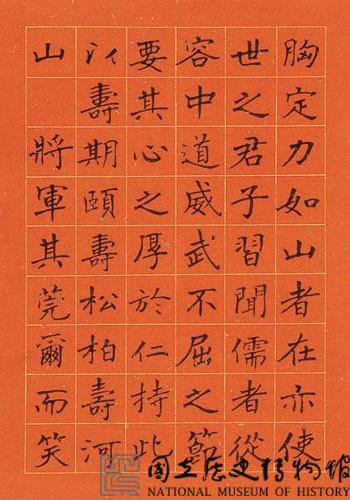 胸定力如山者在亦使
世之君子習聞儒者從
容中道威武不屈之節
要其心之厚於仁持此
以壽期頤壽松柏壽河
山 將軍其莞爾而笑
國立歷史博物館
NATIONAL MUSEUM OF HISTORY